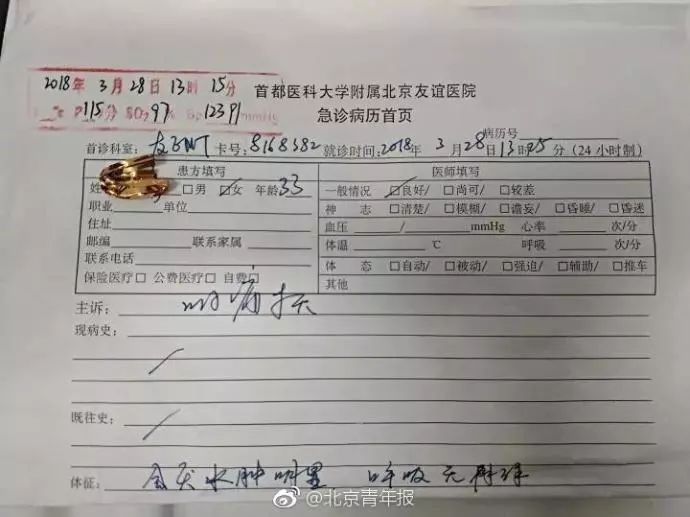 2018年 3月 28日 13时 15分
P 115分 SO₂ 97% Bp 123/91 mmHg
首都医科大学附属北京友谊医院
急诊病历首页
病历号
首诊科室： 卡号：8168382 就诊时间：2018年 3月28日13时25分（24小时制）
患方填写 医师填写
姓 □男 ☑女 年龄33 一般情况 ☑良好/ □尚可/ □较差
职业 单位 神 志 □清楚/ □模糊/ □谵妄/ □昏睡/ □昏迷
住址 血压 / mmHg 心率 次/分
邮编 联系家属 体温 ℃ 呼吸 次/分
联系电话 体 态 □自动/ □被动/ □强迫/ □辅助/ □推车
保险医疗□ 公费医疗□ 自费□ 其他
主诉： 咽痛
现病史：
既往史：
体征： 会厌水肿明显 呼吸无
@北京青年报